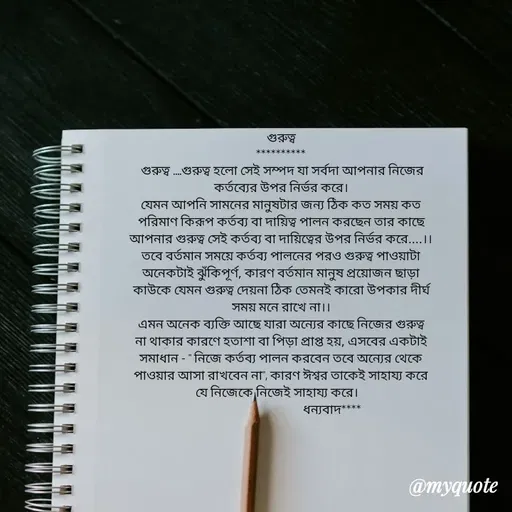 গুরুত্ব
**********
গুরুত্ব ....গুরুত্ব হলো সেই সম্পদ যা সর্বদা আপনার নিজের
কর্তব্যের উপর নির্ভর করে।
যেমন আপনি সামনের মানুষটার জন্য ঠিক কত সময় কত
পরিমাণ কিরূপ কর্তব্য বা দায়িত্ব পালন করছেন তার কাছে
আপনার গুরুত্ব সেই কর্তব্য বা দায়িত্বের উপর নির্ভর করে....।।
তবে বর্তমান সময়ে কর্তব্য পালনের পরও গুরুত্ব পাওয়াটা
অনেকটাই ঝুঁকিপূর্ণ, কারণ বর্তমান মানুষ প্রয়োজন ছাড়া
কাউকে যেমন গুরুত্ব দেয়না ঠিক তেমনই কারো উপকার দীর্ঘ
সময় মনে রাখে না।।
এমন অনেক ব্যক্তি আছে যারা অন্যের কাছে নিজের গুরুত্ব
না থাকার কারণে হতাশা বা পিড়া প্রাপ্ত হয়, এসবের একটাই
সমাধান - " নিজে কর্তব্য পালন করবেন তবে অন্যের থেকে
পাওয়ার আসা রাখবেন না", কারণ ঈশ্বর তাকেই সাহায্য করে
যে নিজেকে নিজেই সাহায্য করে।
ধন্যবাদ****
@myquote